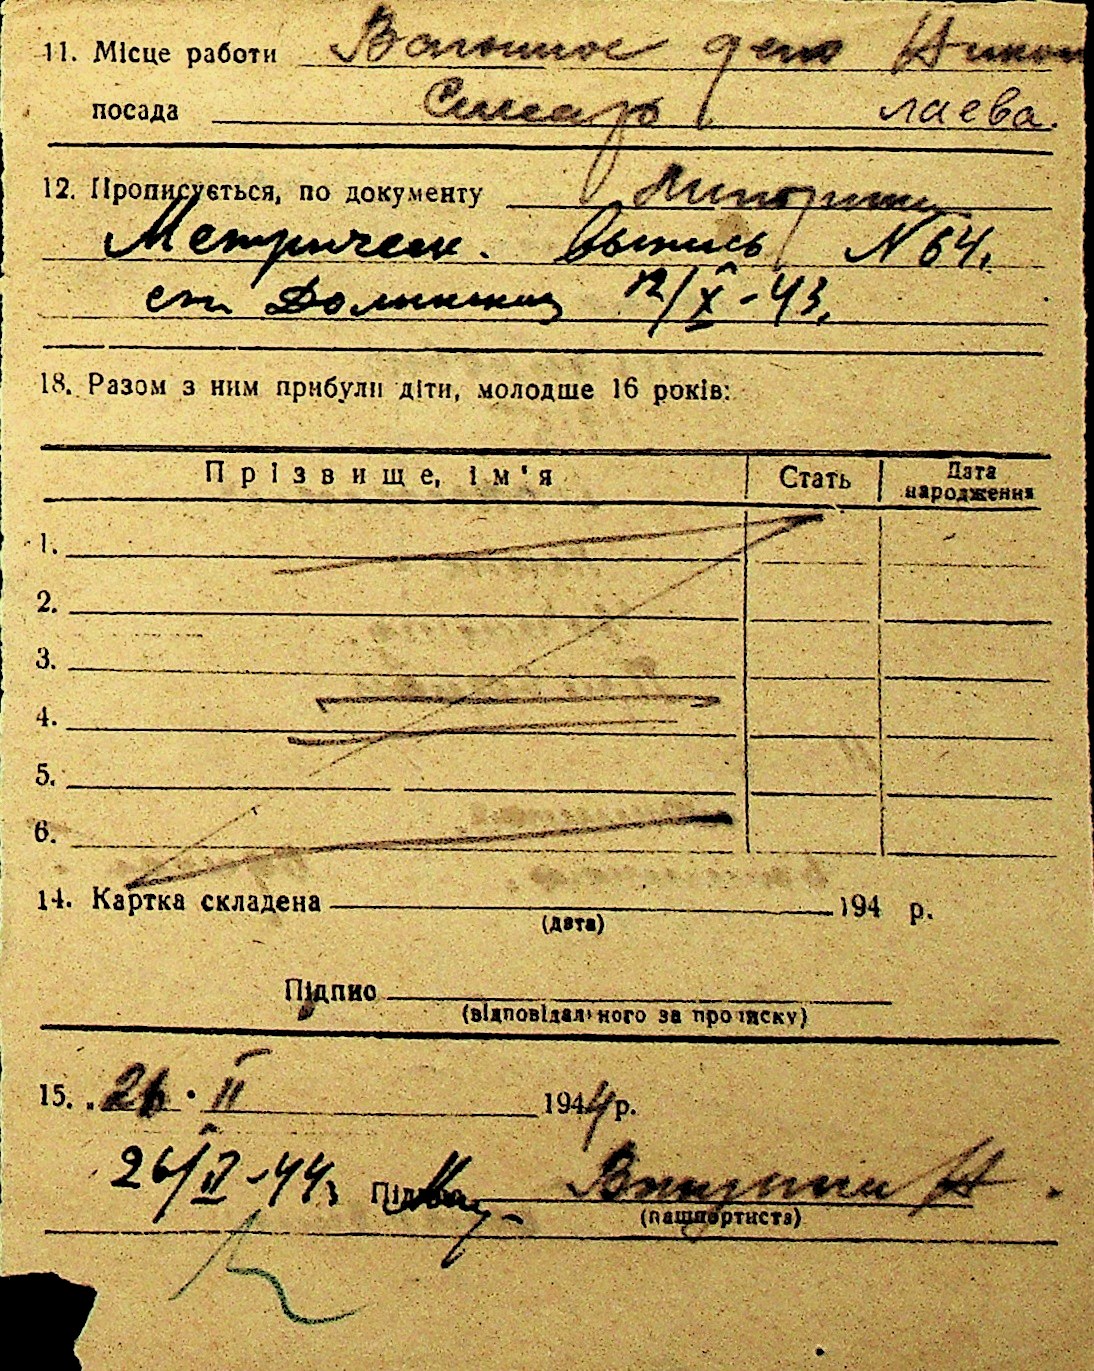 11. Місце работи Вагонное депо Нико
посада Слесарь лаева.
12. Прописується, по документу
Метрическ. выпись N 64.
ст. Долинская 12/X-43.
18. Разом з ним прибули діти, молодше 16 років:
Прізвище, ім'я Стать Дата народження
1.
2.
3.
4.
5.
6.
14. Картка складена 194 р.
(дата)
Підпис
(відповідального за прописку)
15. 26. II 1944 р.
26/II-44 Підпис
(пашпортиста)